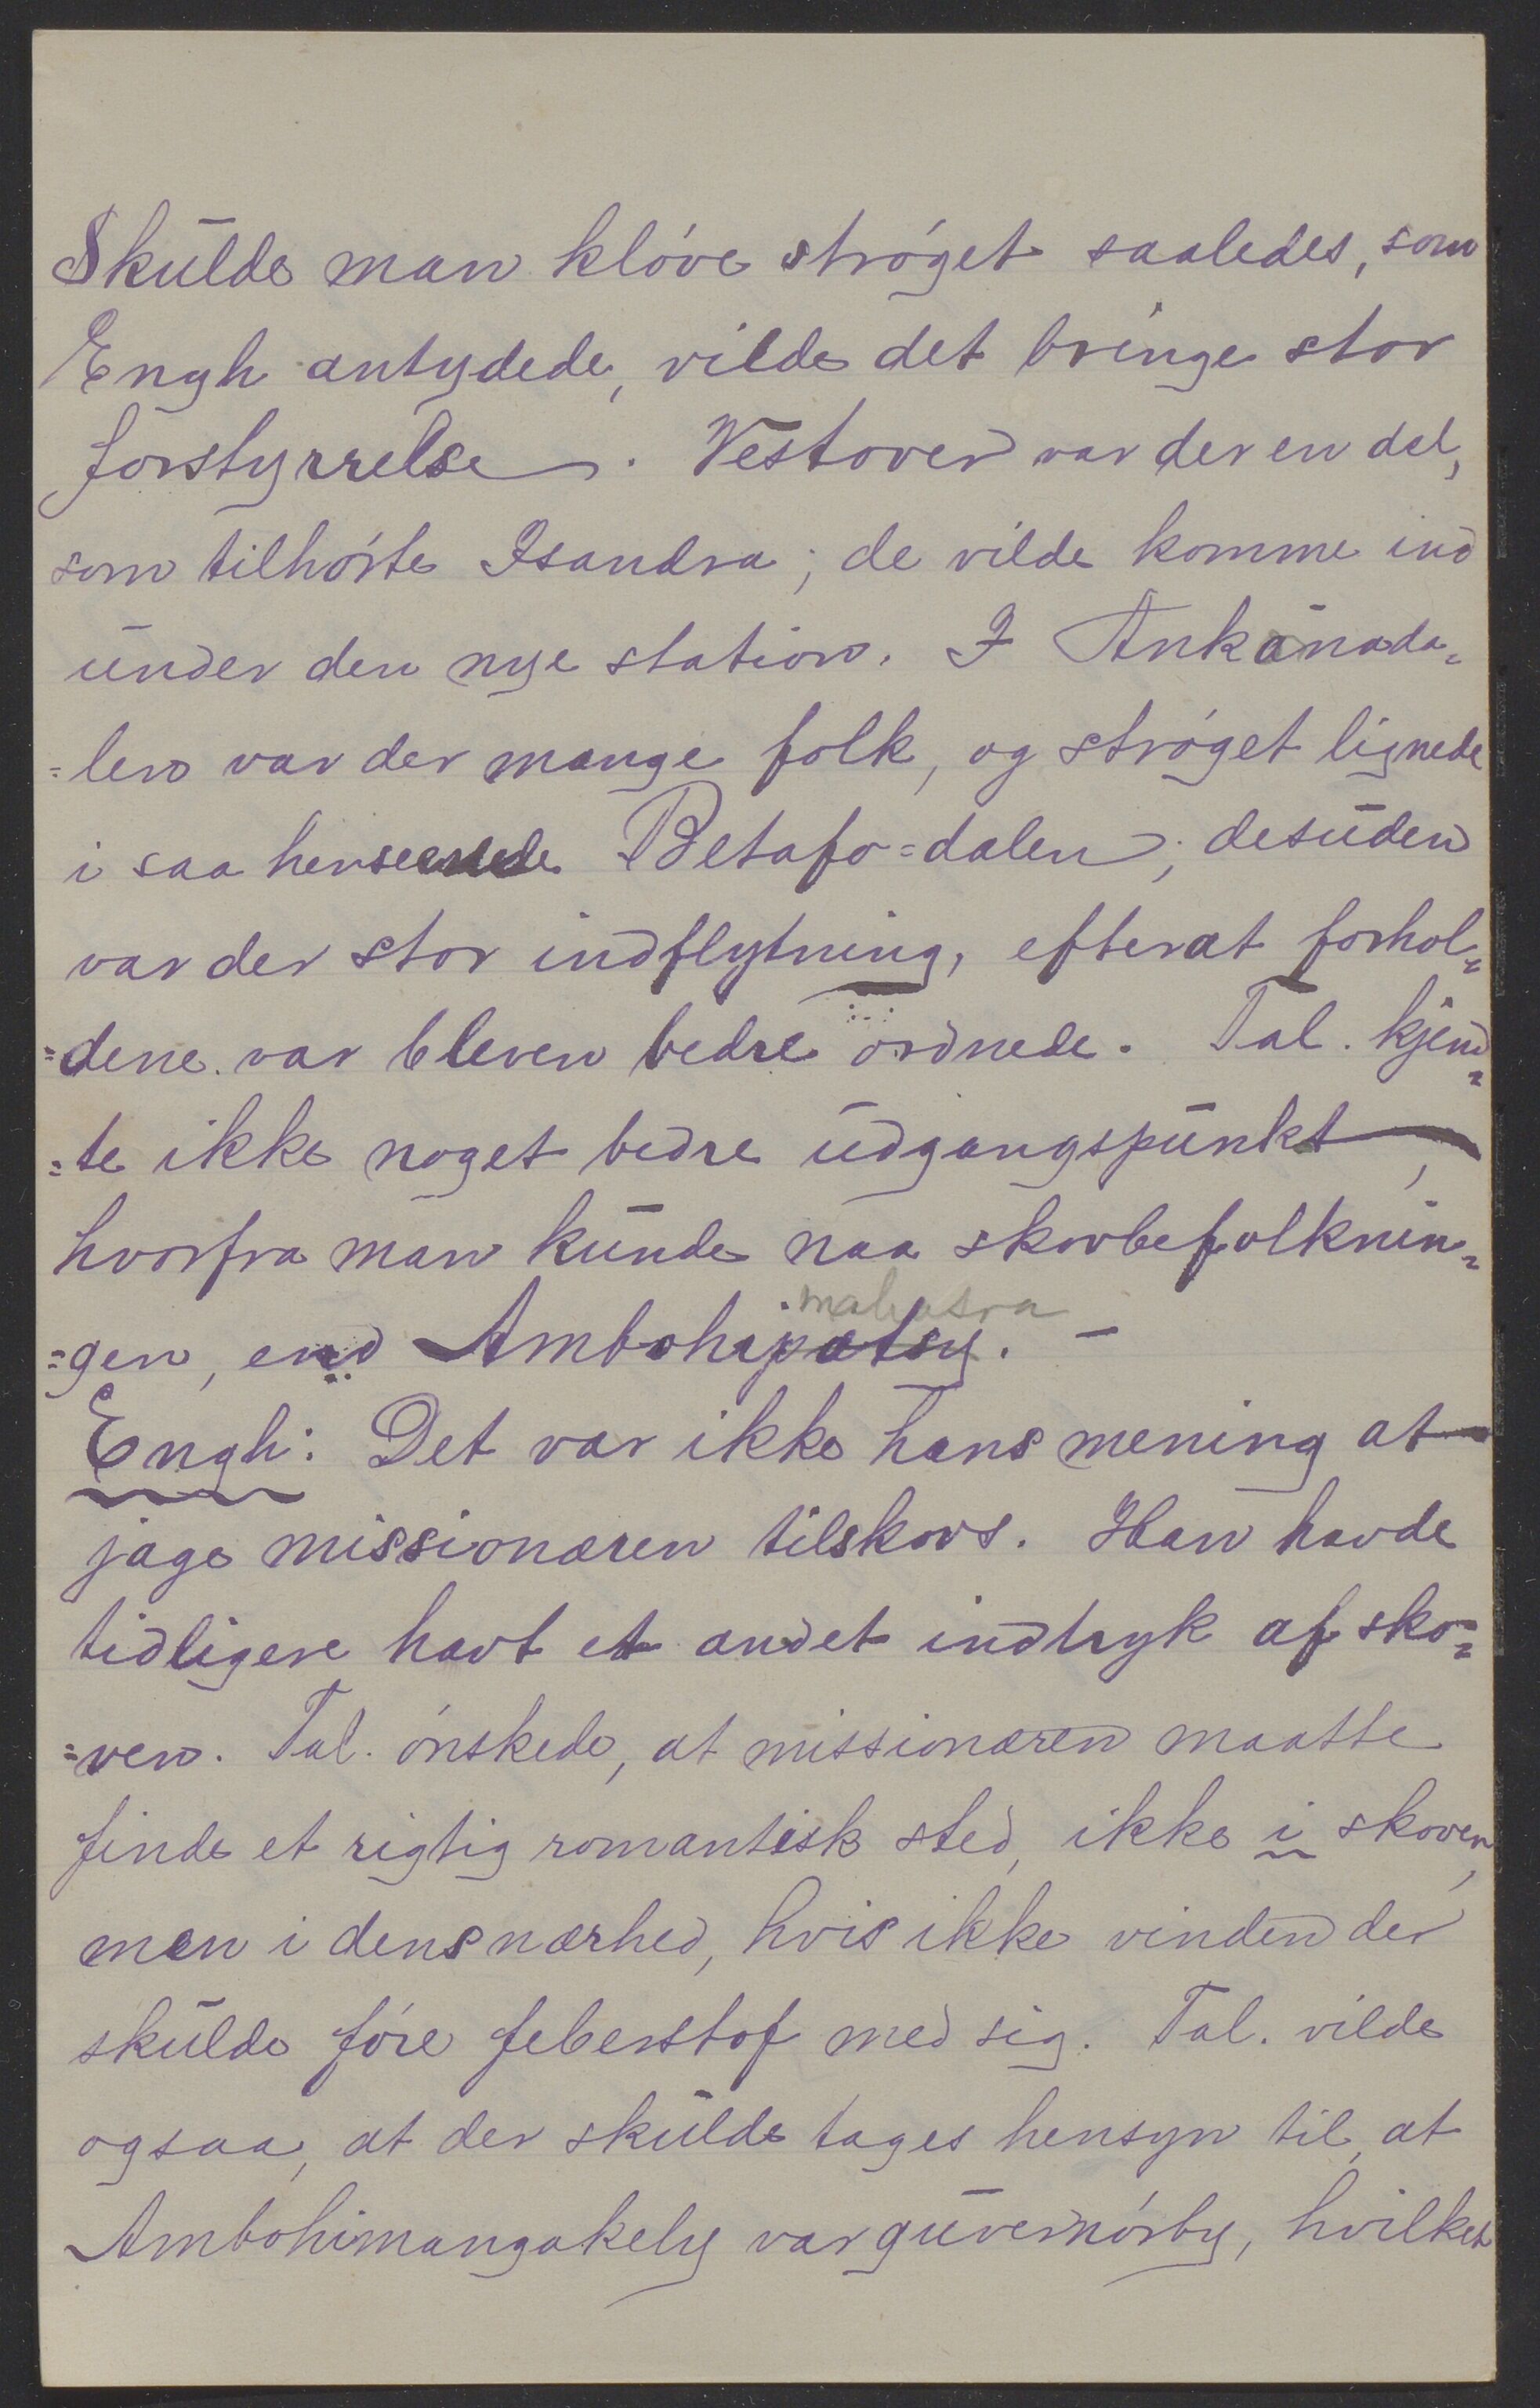 Skulde man kløve strøget saaledes, som
Engh antydede, vilde det bringe stor
forstyrrelse. Vestover var der en del,
som tilhørte Isandra; de vilde komme ind
under den nye station. I Ankona da=
=len var der mange folk, og strøget lignede
i saa henseende Betafo=dalen; desuden
var der stor indflytning, efterat forhol=
=dene var bleven bedre ordnede. Tal. kjend=
=te ikke noget bedre udgangspunkt,
hvorfra man kunde naa skovbefolknin=
mahasoa
=gen, end Ambohipatsy. –
Engh: Det var ikke hans mening at
jage missionæren tilskovs. Han havde
tidligere havt et andet indtryk af sko=
=ven. Tal. ønskede, at missionæren maatte
finde et rigtig romantisk sted, ikke i skoven,
men i dens nærhed, hvis ikke vinden der
skulde føre feberstof med sig. Tal. vilde
ogsaa, at der skulde tages hensyn til, at
Ambohimangakely var guvernørby, hvilket